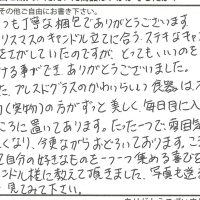 その他ご自由にお書き下さい。
つも丁寧な梱包でありがとうございます
リスマスのキャンドル立てに合う、ステキなキャン
をさがしていたのですが、とってもいいのを
ける事ができ ありがとうございました。
た、プレスドグラスのかわいらしい食器は
り(実物)の方がずっと美しく 毎日目に入
ころに置いてあります。たった一つで、雰囲気
くなり、今更ながらおどろいております。こ
自分の好きなものを一つ一つ集める喜びを
ンドル様に教えて頂きました。写真も送
見てみて下さい。